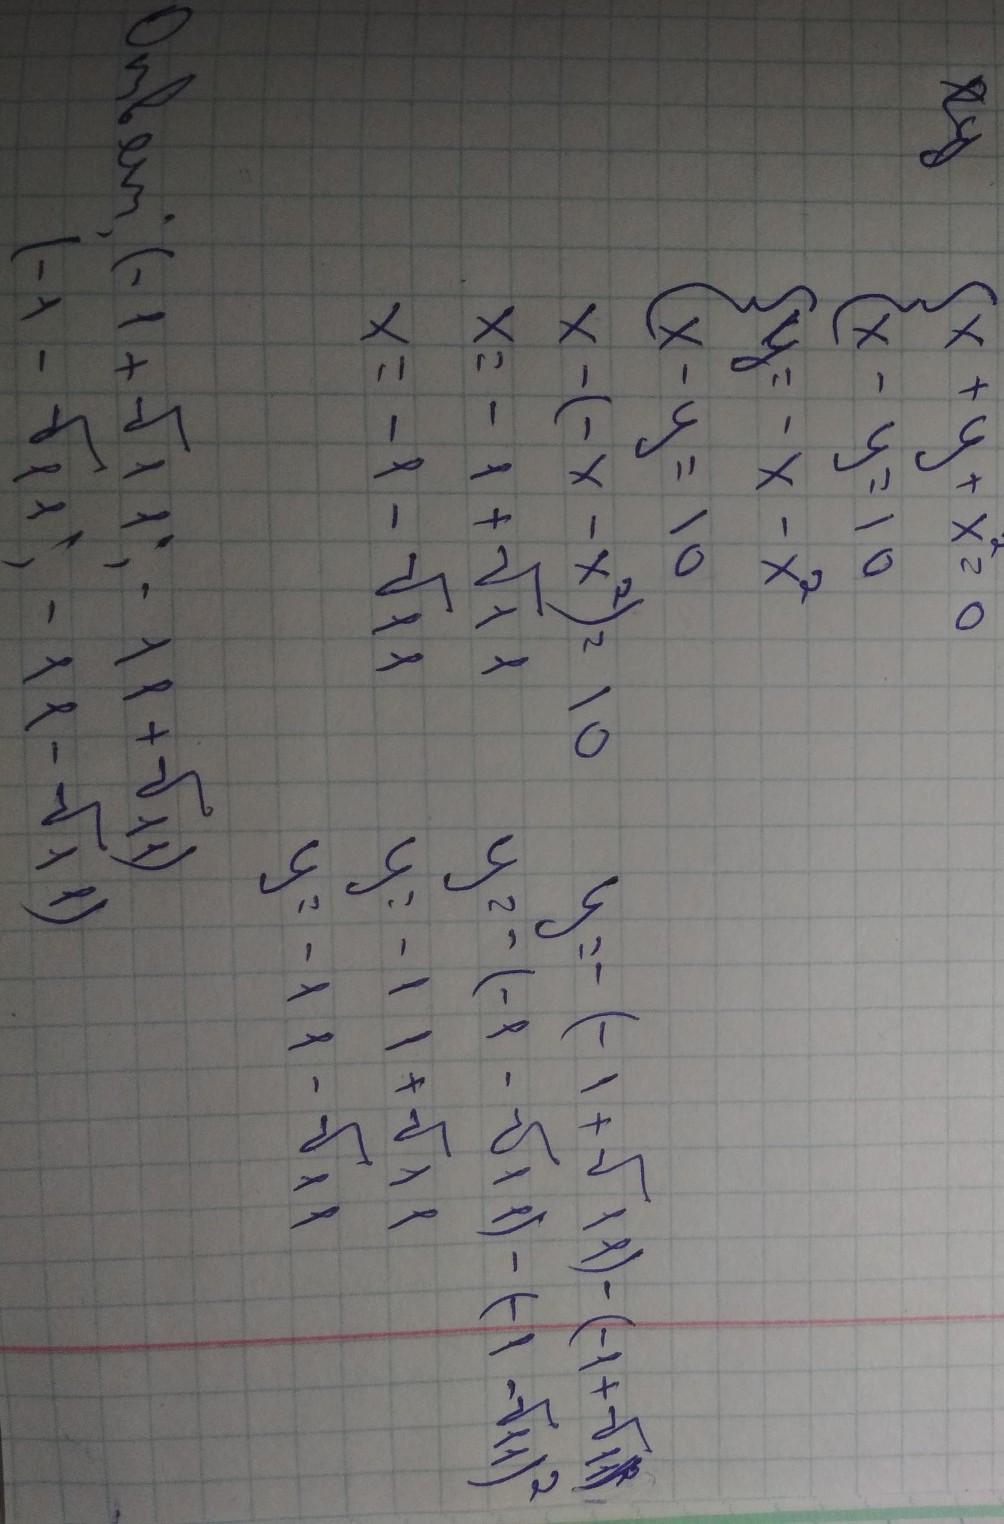 x + y + x² = 0
x - y = 10
y = - x - x²
x - y = 10
x - (- x - x²) = 10
x = - 1 + √11
x = - 1 - √11
y = - (- 1 + √11) - (-1 + √11)²
y = - (- 1 - √11) - (-1 - √11)²
y = - 11 + √11
y = - 11 - √11
Ответ: (-1 + √11; - 11 + √11)
(-1 - √11; - 11 - √11)